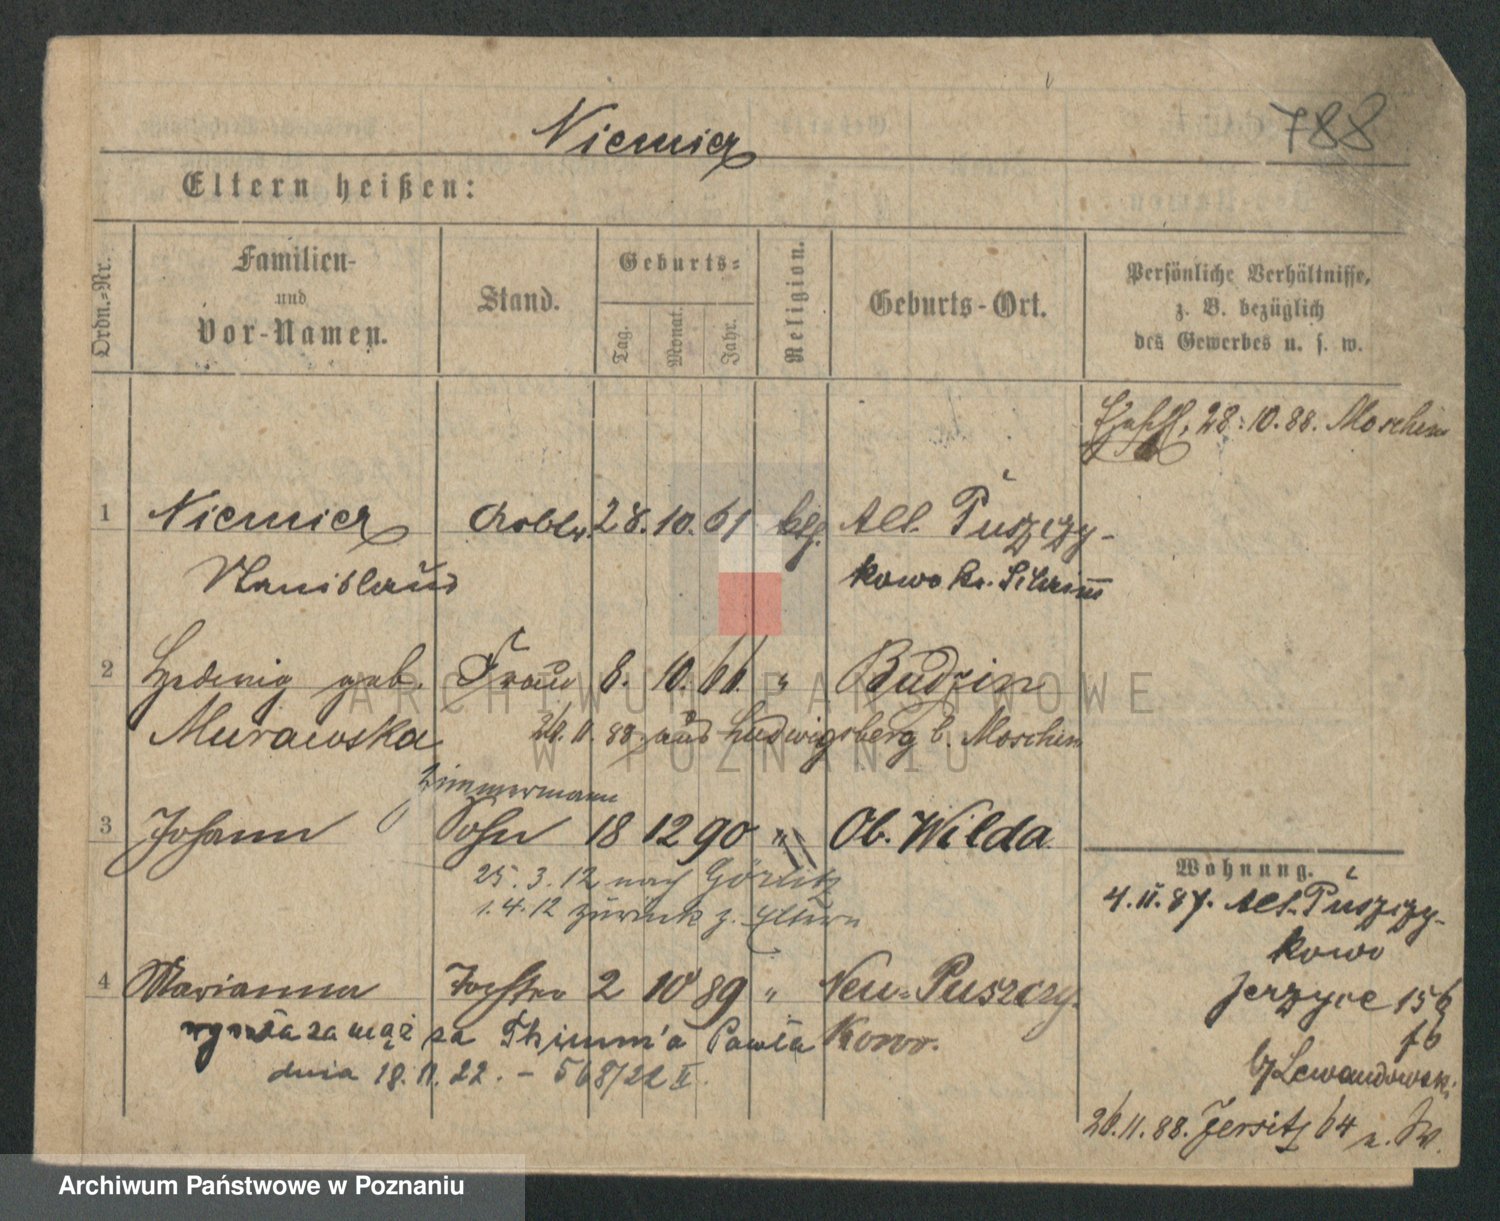 Niemier
788
Eltern heißen:
Ordn.-Nr.
Familien-
und
Vor-Namen.
Stand.
Geburts-
Tag.
Monat.
Jahr.
Religion.
Geburts-Ort.
Persönliche Verhältnisse,
z. B. bezüglich
des Gewerbes u. s. w.
28.10.88. Moschin
1 Niemier Arbtr. 28. 10. 61 kth. Alt. Puszczy-
Stanislaus kowo Kr. Schrimm
2 Hedwig geb. Frau 8. 10. 66. " Budzin
Murawska 26.11.88 aus Ludwigsberg b. Moschin
Zimmermann
3 Johann Sohn 18 12 90 " Ob. Wilda.
25.3.12 nach Görlitz
1.4.12 zurück z. Eltern
Wohnung.
4.11.87. Alt-Puszczy-
kowo
4 Marianna Tochter 2 10 89 " Neu-Puszczy-
kowo.
Jerzyce 156
wyszła za mąż za Thimm'a Pawła
dnia 18.11.22. – 568/22 II.
b/Lewandowski
26.11.88. Jersitz 64
ARCHIWUM PAŃSTWOWE
W POZNANIU
Archiwum Państwowe w Poznaniu